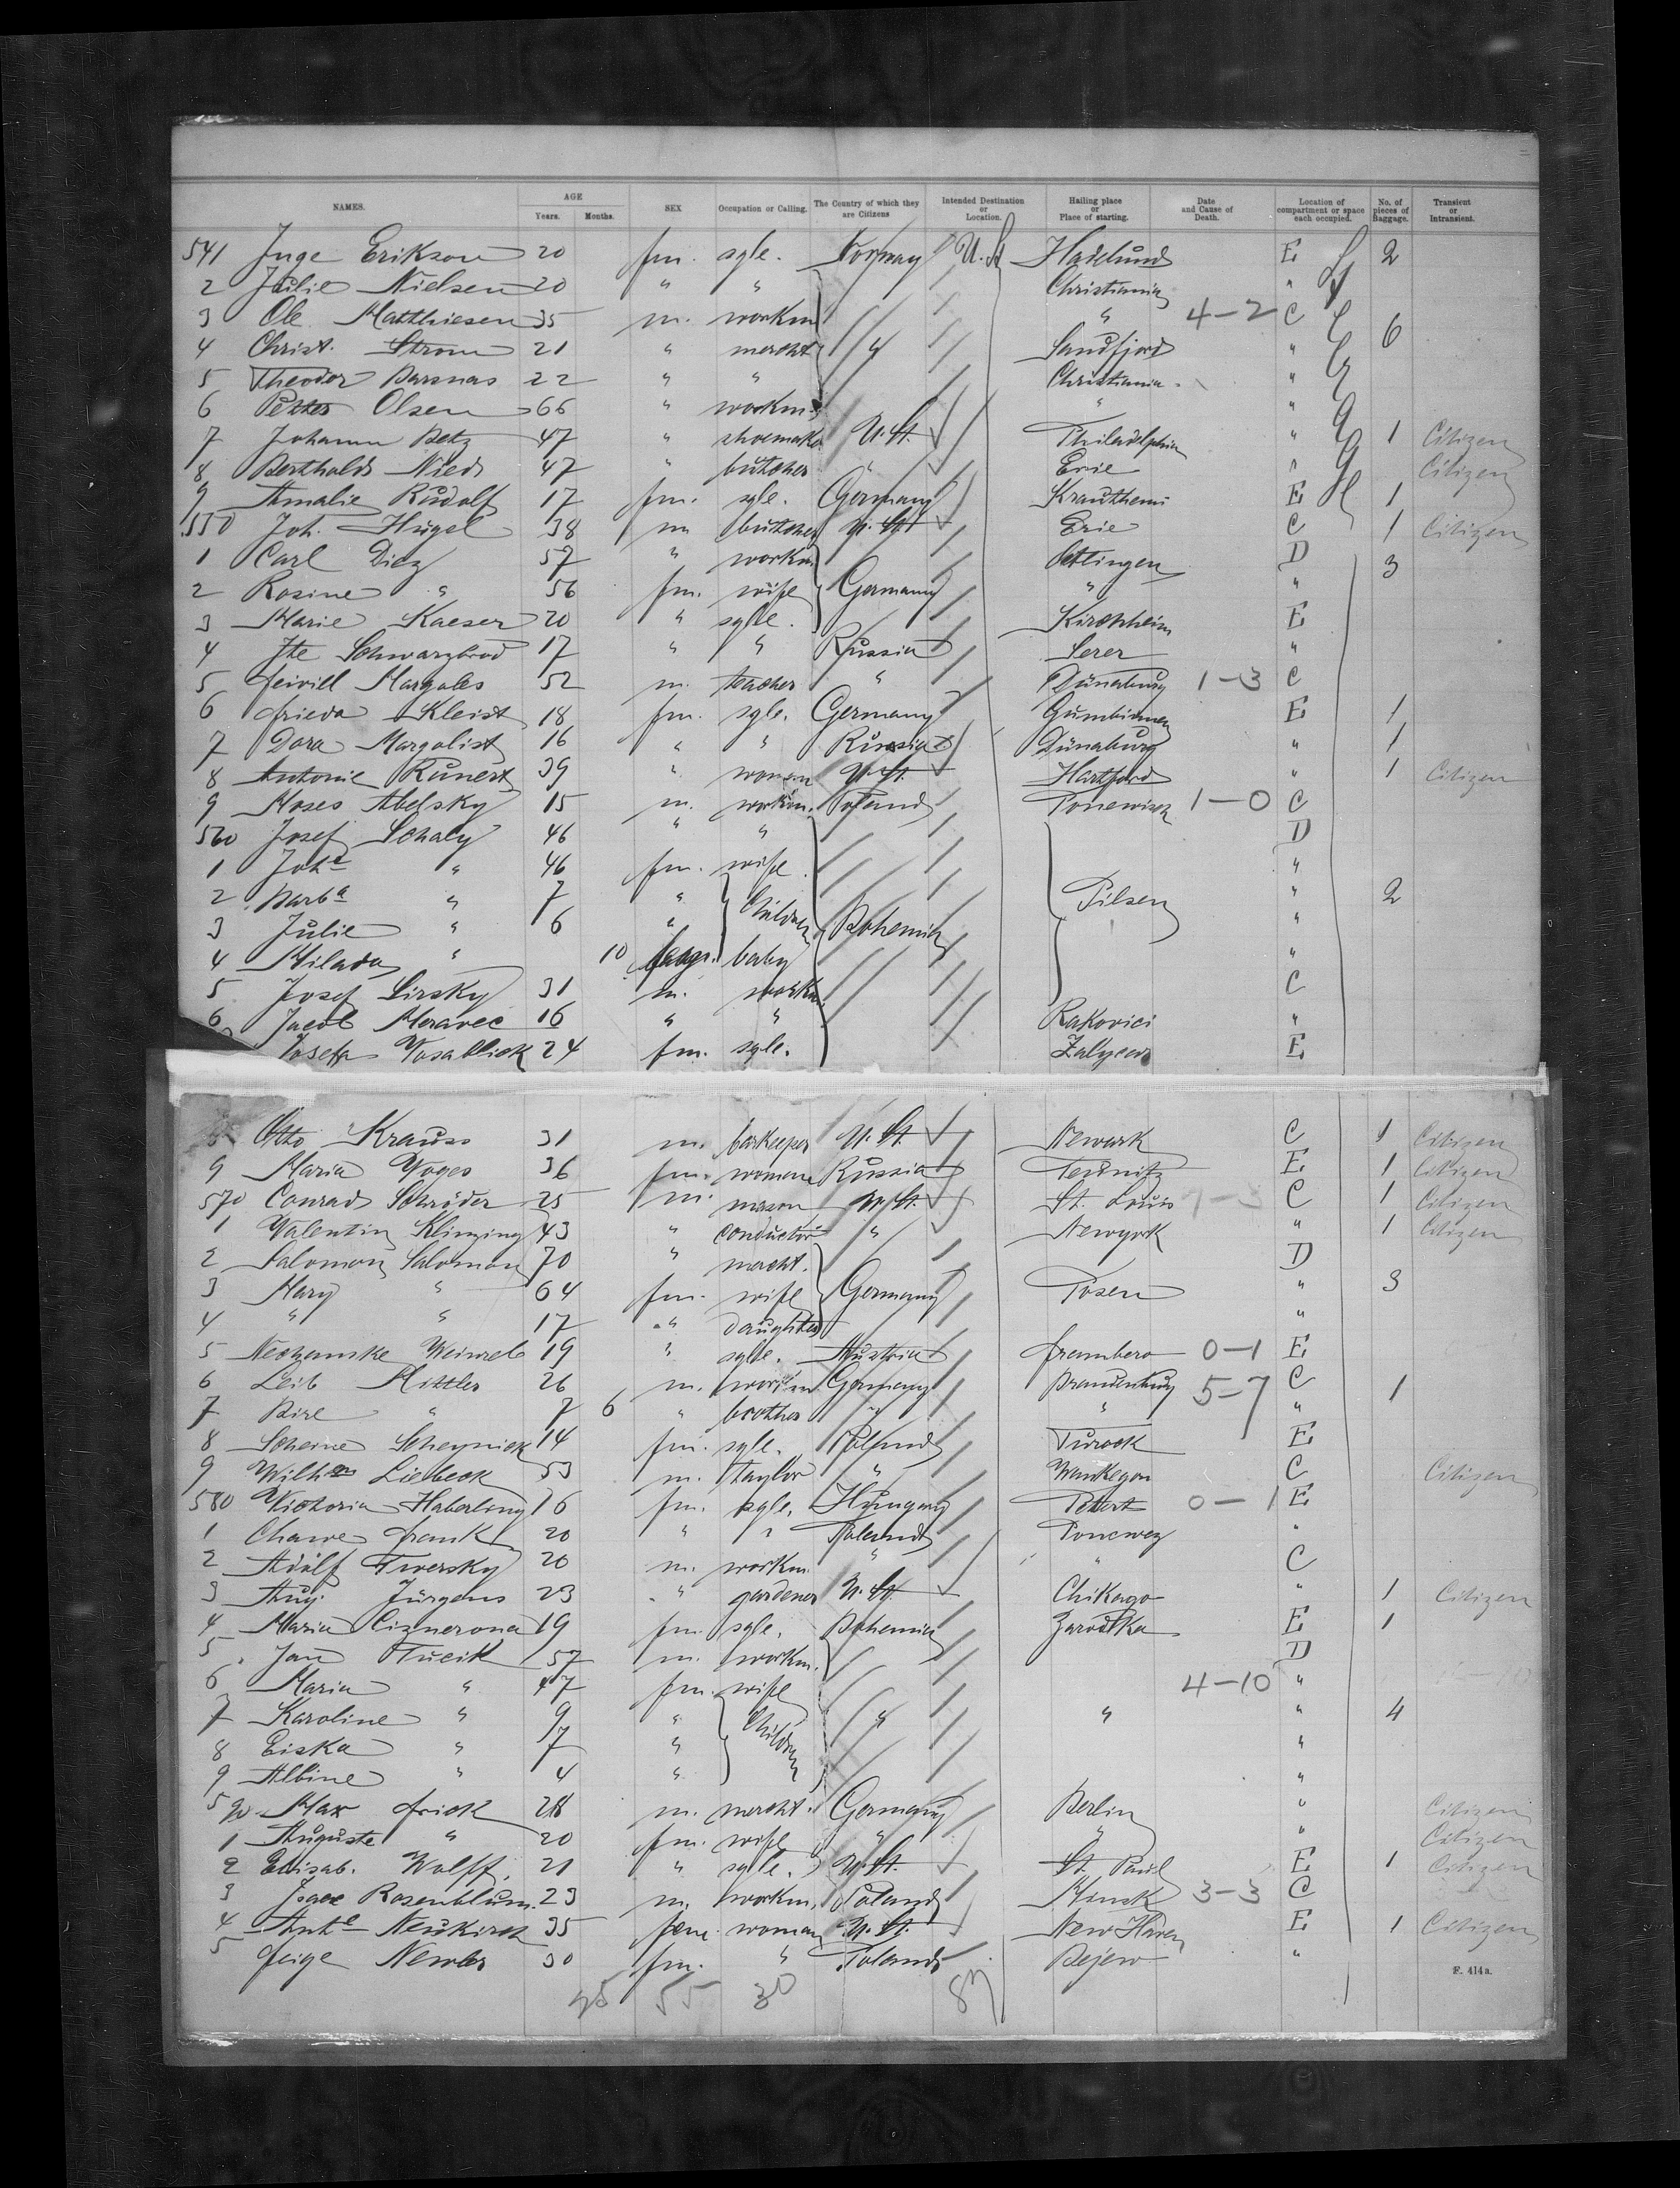 NAMES. AGE Years. Months. SEX Occupation or Calling. The Country of which they are Citizens Intended Destination or Location. Hailing place or Place of starting. Date and Cause of Death. Location of compartment or space each occupied. No. of pieces of Baggage. Transient or Intransient.
541 Inge Erikson 20 fm. sgle. Norway U. St. Hadelund E 2
2 Julie Nielsen 20 " " Christiania "
3 Ole Matthiesen 35 m. workm " 4-2 C 6
4 Christ. Strom 21 " mercht " Sandfjord "
5 Theodor Barsnas 22 " " Christiania "
6 Petter Olsen 66 " workm " "
7 Johann Betz 47 " shoemaker U. St. Philadelphia " 1 Citizen
8 Berthold Nied 47 " butcher " Erie " Citizen
9 Amalie Rudolf 17 fm. sgle. Germany Krautheim E 1
550 Joh. Hügel 38 m butcher U. St. Erie C 1 Citizen
1 Carl Diez 57 " workm Ottlingen D 3
2 Rosine " 56 fm. wife Germany " "
3 Marie Kaeser 20 " sgle. Kirchheim E
4 Ite Schwarzbrod 17 " " Russia Serer "
5 Feivill Margoles 52 m. teacher " Dünaburg 1-3 C
6 Frieda Kleist 18 fm. sgle. Germany Gumbinnen E 1
7 Dora Margolist 16 " " Russia Dünaburg " 1
8 Antonie Kunert 39 " woman U. St. Hartford " 1 Citizen
9 Moses Abelsky 15 m. workm. Poland Ponewisch 1-0 C
560 Josef Schaly 46 " " D
1 Joha " 46 fm. wife "
2 Barba " 7 " Children Pilsen " 2
3 Julie " 6 " Bohemia "
4 Milada " 10 baby "
5 Josef Lirsky 31 m. workm C
6 Jacob Moravec 16 " " Rakovici "
Josefa Vosablick 24 fm. sgle. E
8 Otto Krauss 31 m. barkeeper U. St. Newark C 1 Citizen
9 Maria Voges 36 fm. woman Russia E 1 Citizen
570 Conrad Schröder 25 m. mason U. St. St. Louis C 1 Citizen
1 Valentin Klinzing 43 " conductor " Newyork " 1 Citizen
2 Salomon Salomon 70 " mercht. D
3 Mary " 64 fm. wife Germany Posen " 3
4 " " 17 " daughter "
5 Nechamke Weinreb 19 " sgle. Austria 0-1 E
6 Leib Mittler 26 m. workm Germany Brandenburg 5-7 C 1
7 Bire " 7 6 " brother " " "
8 Scheine Scheynick 14 fm. sgle. Poland Turock E
9 Wilhm Liebeck 53 m. taylor " Waukegon C Citizen
580 Victoria Haberling 16 fm. sgle. Hungary 0-1 E
1 Chawe Frank 20 " " Poland Ponewez "
2 Adolf Twersky 20 m. workm. " " C
3 Aug. Jürgens 23 " gardener U. St. Chikago " 1 Citizen
4 Maria Ciznerona 19 fm. sgle. Bohemia Zarodka E 1
5 Jan Tucik 57 m. workm. D
6 Maria " 47 fm. wife 4-10 "
7 Karoline " 9 " Children " " " 4
8 Eiska " 7 " "
9 Albine " 4 " "
590 Max Frick 28 m. mercht. Germany Berlin " Citizen
1 Auguste " 20 fm. wife " " " Citizen
2 Elisab. Wolff. 21 " sgle. U. St. St. Paul E 1 Citizen
3 Isaac Rosenblum. 23 m. workm. Poland Minsk 3-3 C
4 Ante Neukirch 35 fem. woman U. St. New Haven E 1 Citizen
5 Feige Newler 30 fm. " Poland Bejew "
55 30
F. 414a.